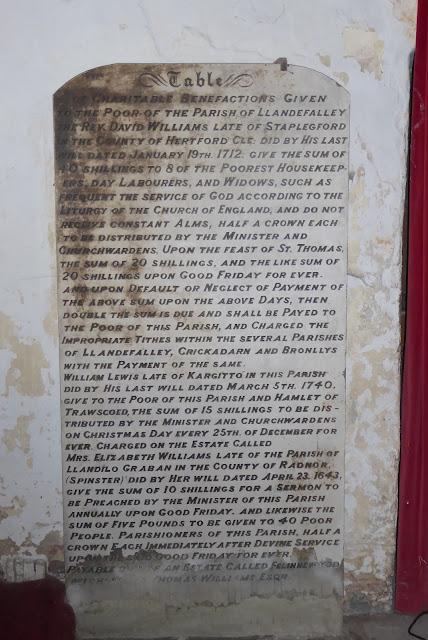 Table
OF CHARITABLE BENEFACTIONS GIVEN
TO THE POOR OF THE PARISH OF LLANDEFALLEY
THE REV. DAVID WILLIAMS LATE OF STAPLEGFORD
IN THE COUNTY OF HERTFORD CLE: DID BY HIS LAST
WILL DATED JANUARY 19TH. 1712. GIVE THE SUM OF
40 SHILLINGS TO 8 OF THE POOREST HOUSEKEEP-
ERS, DAY LABOURERS, AND WIDOWS, SUCH AS
FREQUENT THE SERVICE OF GOD ACCORDING TO THE
LITURGY OF THE CHURCH OF ENGLAND, AND DO NOT
RECEIVE CONSTANT ALMS, HALF A CROWN EACH
TO BE DISTRIBUTED BY THE MINISTER AND
CHURCHWARDENS. UPON THE FEAST OF ST. THOMAS,
THE SUM OF 20 SHILLINGS, AND THE LIKE SUM OF
20 SHILLINGS UPON GOOD FRIDAY FOR EVER.
AND UPON DEFAULT OR NEGLECT OF PAYMENT OF
THE ABOVE SUM UPON THE ABOVE DAYS, THEN
DOUBLE THE SUM IS DUE AND SHALL BE PAYED TO
THE POOR OF THIS PARISH, AND CHARGED THE
IMPROPRIATE TITHES WITHIN THE SEVERAL PARISHES
OF LLANDEFALLEY, CRICKADARN AND BRONLLYS
WITH THE PAYMENT OF THE SAME.
WILLIAM LEWIS LATE OF KARGITTO IN THIS PARISH
DID BY HIS LAST WILL DATED MARCH 5TH. 1740.
GIVE TO THE POOR OF THIS PARISH AND HAMLET OF
TRAWSCOED, THE SUM OF 15 SHILLINGS TO BE DIS-
TRIBUTED BY THE MINISTER AND CHURCHWARDENS
ON CHRISTMAS DAY EVERY 25TH. OF DECEMBER FOR
EVER. CHARGED ON THE ESTATE CALLED
MRS. ELIZABETH WILLIAMS LATE OF THE PARISH OF
LLANDILO GRABAN IN THE COUNTY OF RADNOR,
(SPINSTER) DID BY HER WILL DATED APRIL 23. 1643,
GIVE THE SUM OF 10 SHILLINGS FOR A SERMON TO
BE PREACHED BY THE MINISTER OF THIS PARISH
ANNUALLY UPON GOOD FRIDAY. AND LIKEWISE THE
SUM OF FIVE POUNDS TO BE GIVEN TO 40 POOR
PEOPLE. PARISHIONERS OF THIS PARISH, HALF A
CROWN EACH IMMEDIATELY AFTER DEVINE SERVICE
UPON THE SAID GOOD FRIDAY FOR EVER.
PAYABLE OUT OF AN ESTATE CALLED
THOMAS WILLIAMS ESQR.